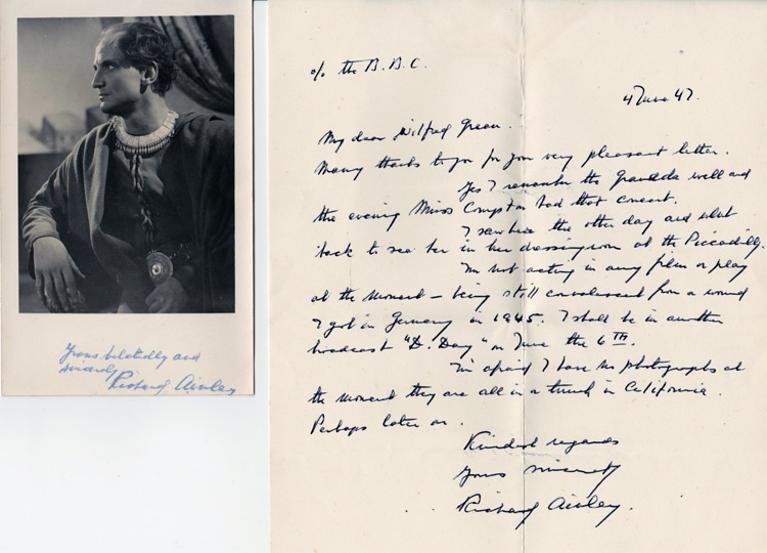 Yours belatedly and
sincerely
Richard Ainley
c/o the B.B.C.
4 June 47.
My dear Wilfred Green.
Many thanks to you for your very pleasant letter.
Yes I remember the well and
the evening Miss Compton had that concert.
I saw her the other day and went
back to see her in her dressing room at the Piccadilly.
I'm not acting in any film or play
at the moment – being still convalescent from a wound
I got in Germany in 1945. I shall be in another
broadcast "D. Day" on June the 6TH.
I'm afraid I have no photographs at
the moment they are all in a trunk in California.
Perhaps later on.
Kindest regards
Yours sincerely
Richard Ainley.